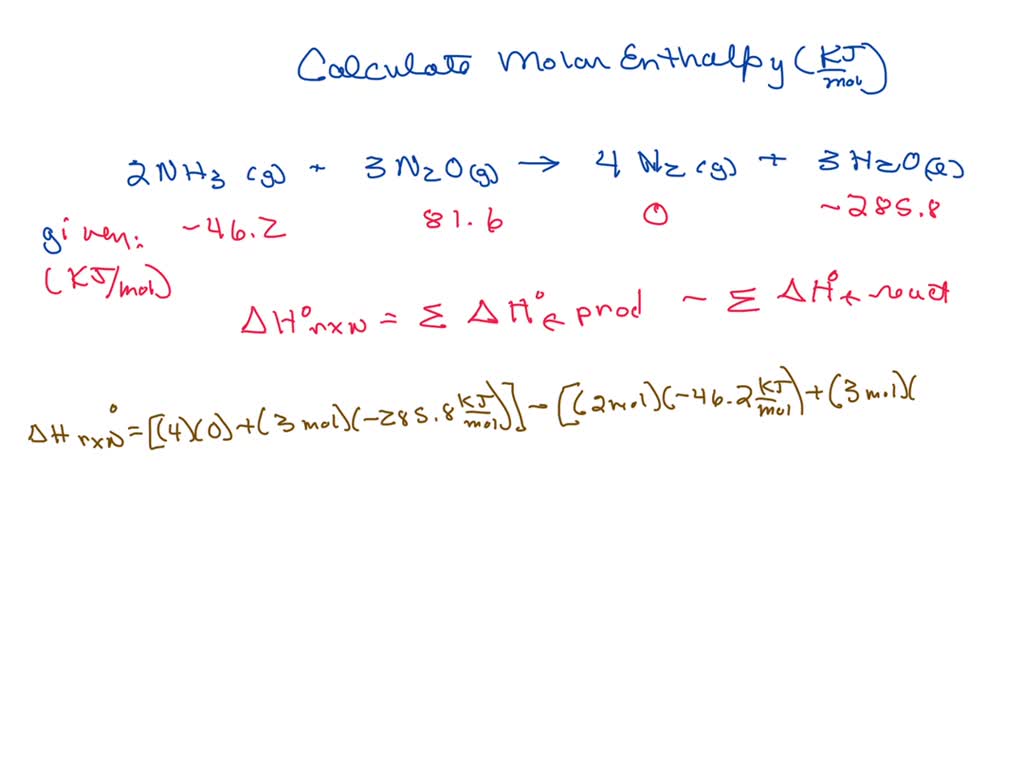 Calculate Molar Enthalpy (KJ/mol)
2NH₃ (g) + 3N₂O(g) → 4 N₂ (g) + 3 H₂O(l)
given: -46.2 81.6 0 -285.8
(KJ/mol)
ΔH°rxN = Σ ΔH°f prod - Σ ΔH°f react
ΔH°rxN = [(4)(0)+(3 mol)(-285.8 KJ/mol)] - [(2mol)(-46.2 KJ/mol)+(3 mol)(